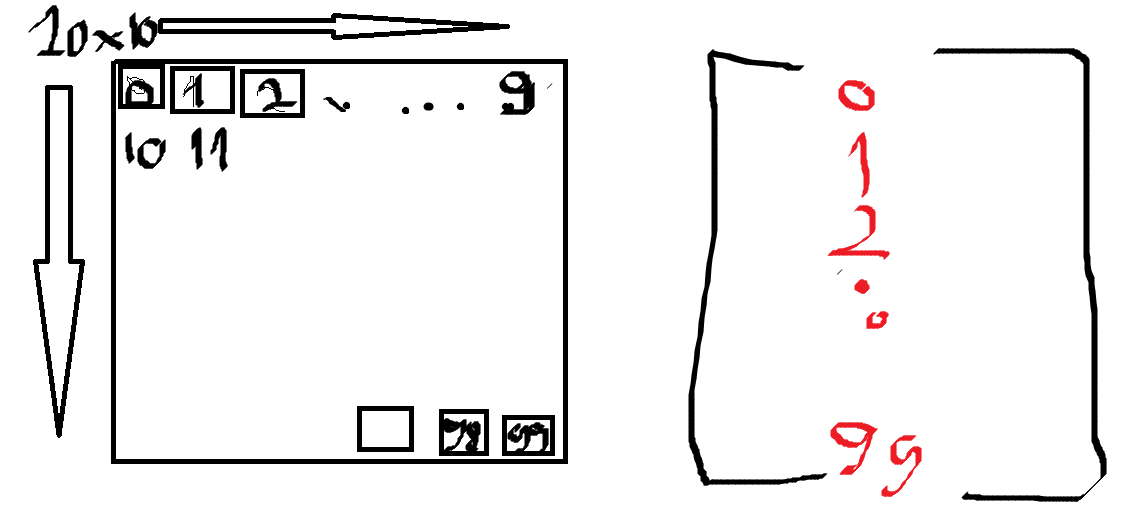 10×10
0 1 2 . . . . 9
10 11
98 99
0
1
2
.
.
99